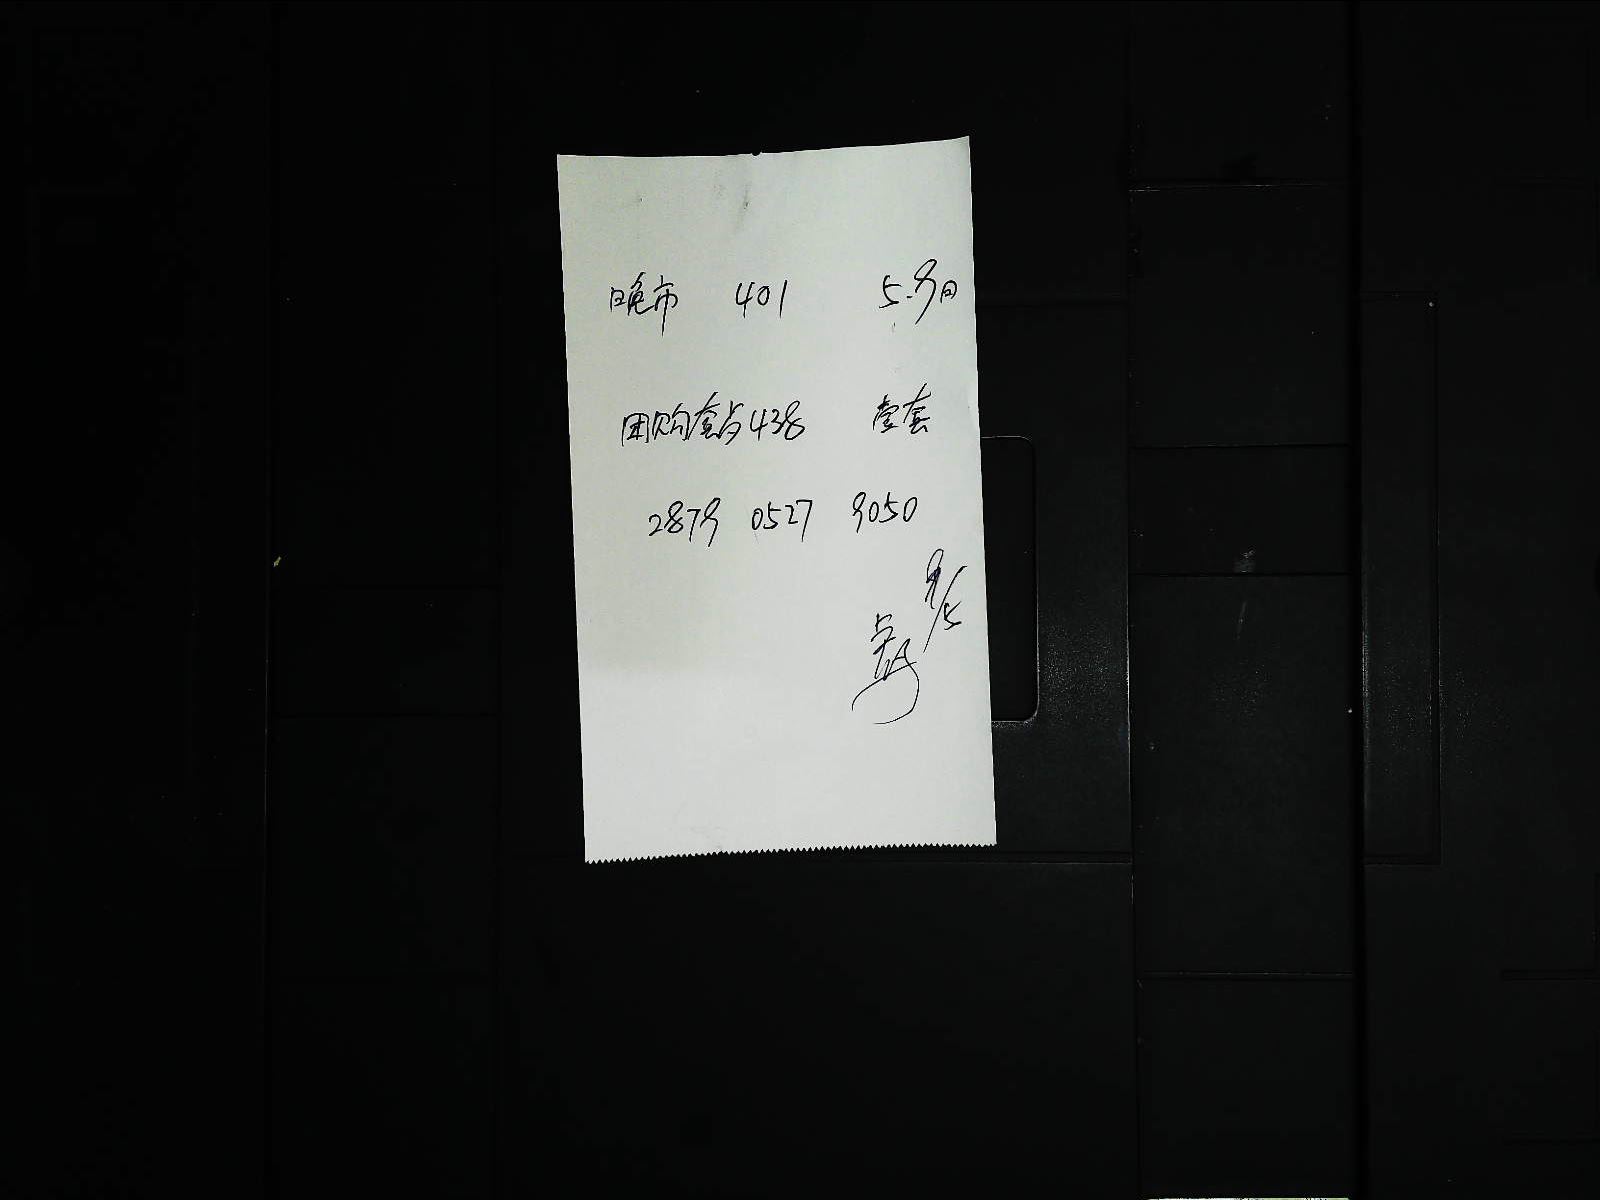 晚市 401 5.9日
团购套占438 壹套
2879 0527 9050
9/5